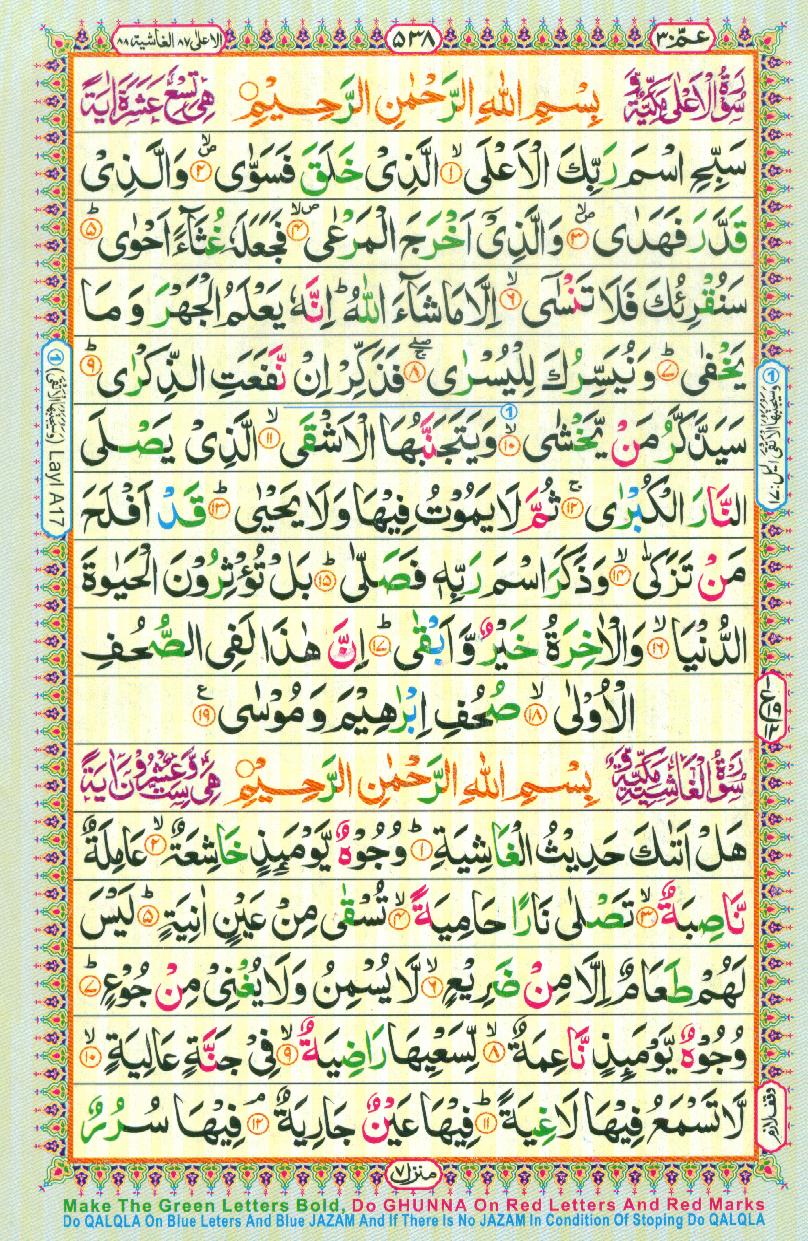 الاعلٰی ٨٧ الغاشیة ٨٨
٥٣٨
عمّ ٣٠
سُوْرَةُ الْاَعْلٰى مَكِّیَّةٌ
بِسْمِ اللّٰهِ الرَّحْمٰنِ الرَّحِیْمِ
هِیَ تِسْعَ عَشْرَةَ اٰیَةً
سَبِّحِ اسْمَ رَبِّكَ الْاَعْلَى ۙ‏﴿١﴾ الَّذِیْ خَلَقَ فَسَوّٰى ۪ۙ‏﴿٢﴾ وَالَّذِیْ
قَدَّرَ فَهَدٰى ۪ۙ‏﴿٣﴾ وَالَّذِیْۤ اَخْرَجَ الْمَرْعٰى ۪ۙ‏﴿٤﴾ فَجَعَلَهٗ غُثَآءً اَحْوٰى ؕ‏﴿٥﴾
سَنُقْرِئُكَ فَلَا تَنْسٰۤى ۙ‏﴿٦﴾ اِلَّا مَا شَآءَ اللّٰهُ ؕ اِنَّهٗ یَعْلَمُ الْجَهْرَ وَمَا
یَخْفٰى ؕ‏﴿٧﴾ وَنُیَسِّرُكَ لِلْیُسْرٰى ۚۖ‏﴿٨﴾ فَذَكِّرْ اِنْ نَّفَعَتِ الذِّكْرٰى ؕ‏﴿٩﴾
سَیَذَّكَّرُ مَنْ یَّخْشٰى ۙ‏﴿١٠﴾ وَیَتَجَنَّبُهَا الْاَشْقَى ۙ‏﴿١١﴾ الَّذِیْ یَصْلَى
النَّارَ الْكُبْرٰى ۚ‏﴿١٢﴾ ثُمَّ لَا یَمُوْتُ فِیْهَا وَلَا یَحْیٰى ؕ‏﴿١٣﴾ قَدْ اَفْلَحَ
مَنْ تَزَكّٰى ۙ‏﴿١٤﴾ وَذَكَرَ اسْمَ رَبِّهٖ فَصَلّٰى ؕ‏﴿١٥﴾ بَلْ تُؤْثِرُوْنَ الْحَیٰوةَ
الدُّنْیَا ۙ‏﴿١٦﴾ وَالْاٰخِرَةُ خَیْرٌ وَّاَبْقٰى ؕ‏﴿١٧﴾ اِنَّ هٰذَا لَفِی الصُّحُفِ
الْاُوْلٰى ۙ‏﴿١٨﴾ صُحُفِ اِبْرٰهِیْمَ وَمُوْسٰى ع‏﴿١٩﴾
سُوْرَةُ الْغَاشِیَةِ مَكِّیَّةٌ
بِسْمِ اللّٰهِ الرَّحْمٰنِ الرَّحِیْمِ
هِیَ سِتٌّ وَّعِشْرُوْنَ اٰیَةً
هَلْ اَتٰىكَ حَدِیْثُ الْغَاشِیَةِ ؕ‏﴿١﴾ وُجُوْهٌ یَّوْمَىِٕذٍ خَاشِعَةٌ ۙ‏﴿٢﴾ عَامِلَةٌ
نَّاصِبَةٌ ۙ‏﴿٣﴾ تَصْلٰى نَارًا حَامِیَةً ۙ‏﴿٤﴾ تُسْقٰى مِنْ عَیْنٍ اٰنِیَةٍ ؕ‏﴿٥﴾ لَیْسَ
لَهُمْ طَعَامٌ اِلَّا مِنْ ضَرِیْعٍ ۙ‏﴿٦﴾ لَّا یُسْمِنُ وَلَا یُغْنِیْ مِنْ جُوْعٍ ؕ‏﴿٧﴾
وُجُوْهٌ یَّوْمَىِٕذٍ نَّاعِمَةٌ ۙ‏﴿٨﴾ لِّسَعْیِهَا رَاضِیَةٌ ۙ‏﴿٩﴾ فِیْ جَنَّةٍ عَالِیَةٍ ۙ‏﴿١٠﴾
لَّا تَسْمَعُ فِیْهَا لَاغِیَةً ؕ‏﴿١١﴾ فِیْهَا عَیْنٌ جَارِیَةٌ ۘ‏﴿١٢﴾ فِیْهَا سُرُرٌ
وقف لازم
منزل ٧
1 Layl A17
Make The Green Letters Bold, Do GHUNNA On Red Letters And Red Marks
Do QALQLA On Blue Leters And Blue JAZAM And If There Is No JAZAM In Condition Of Stoping Do QALQLA